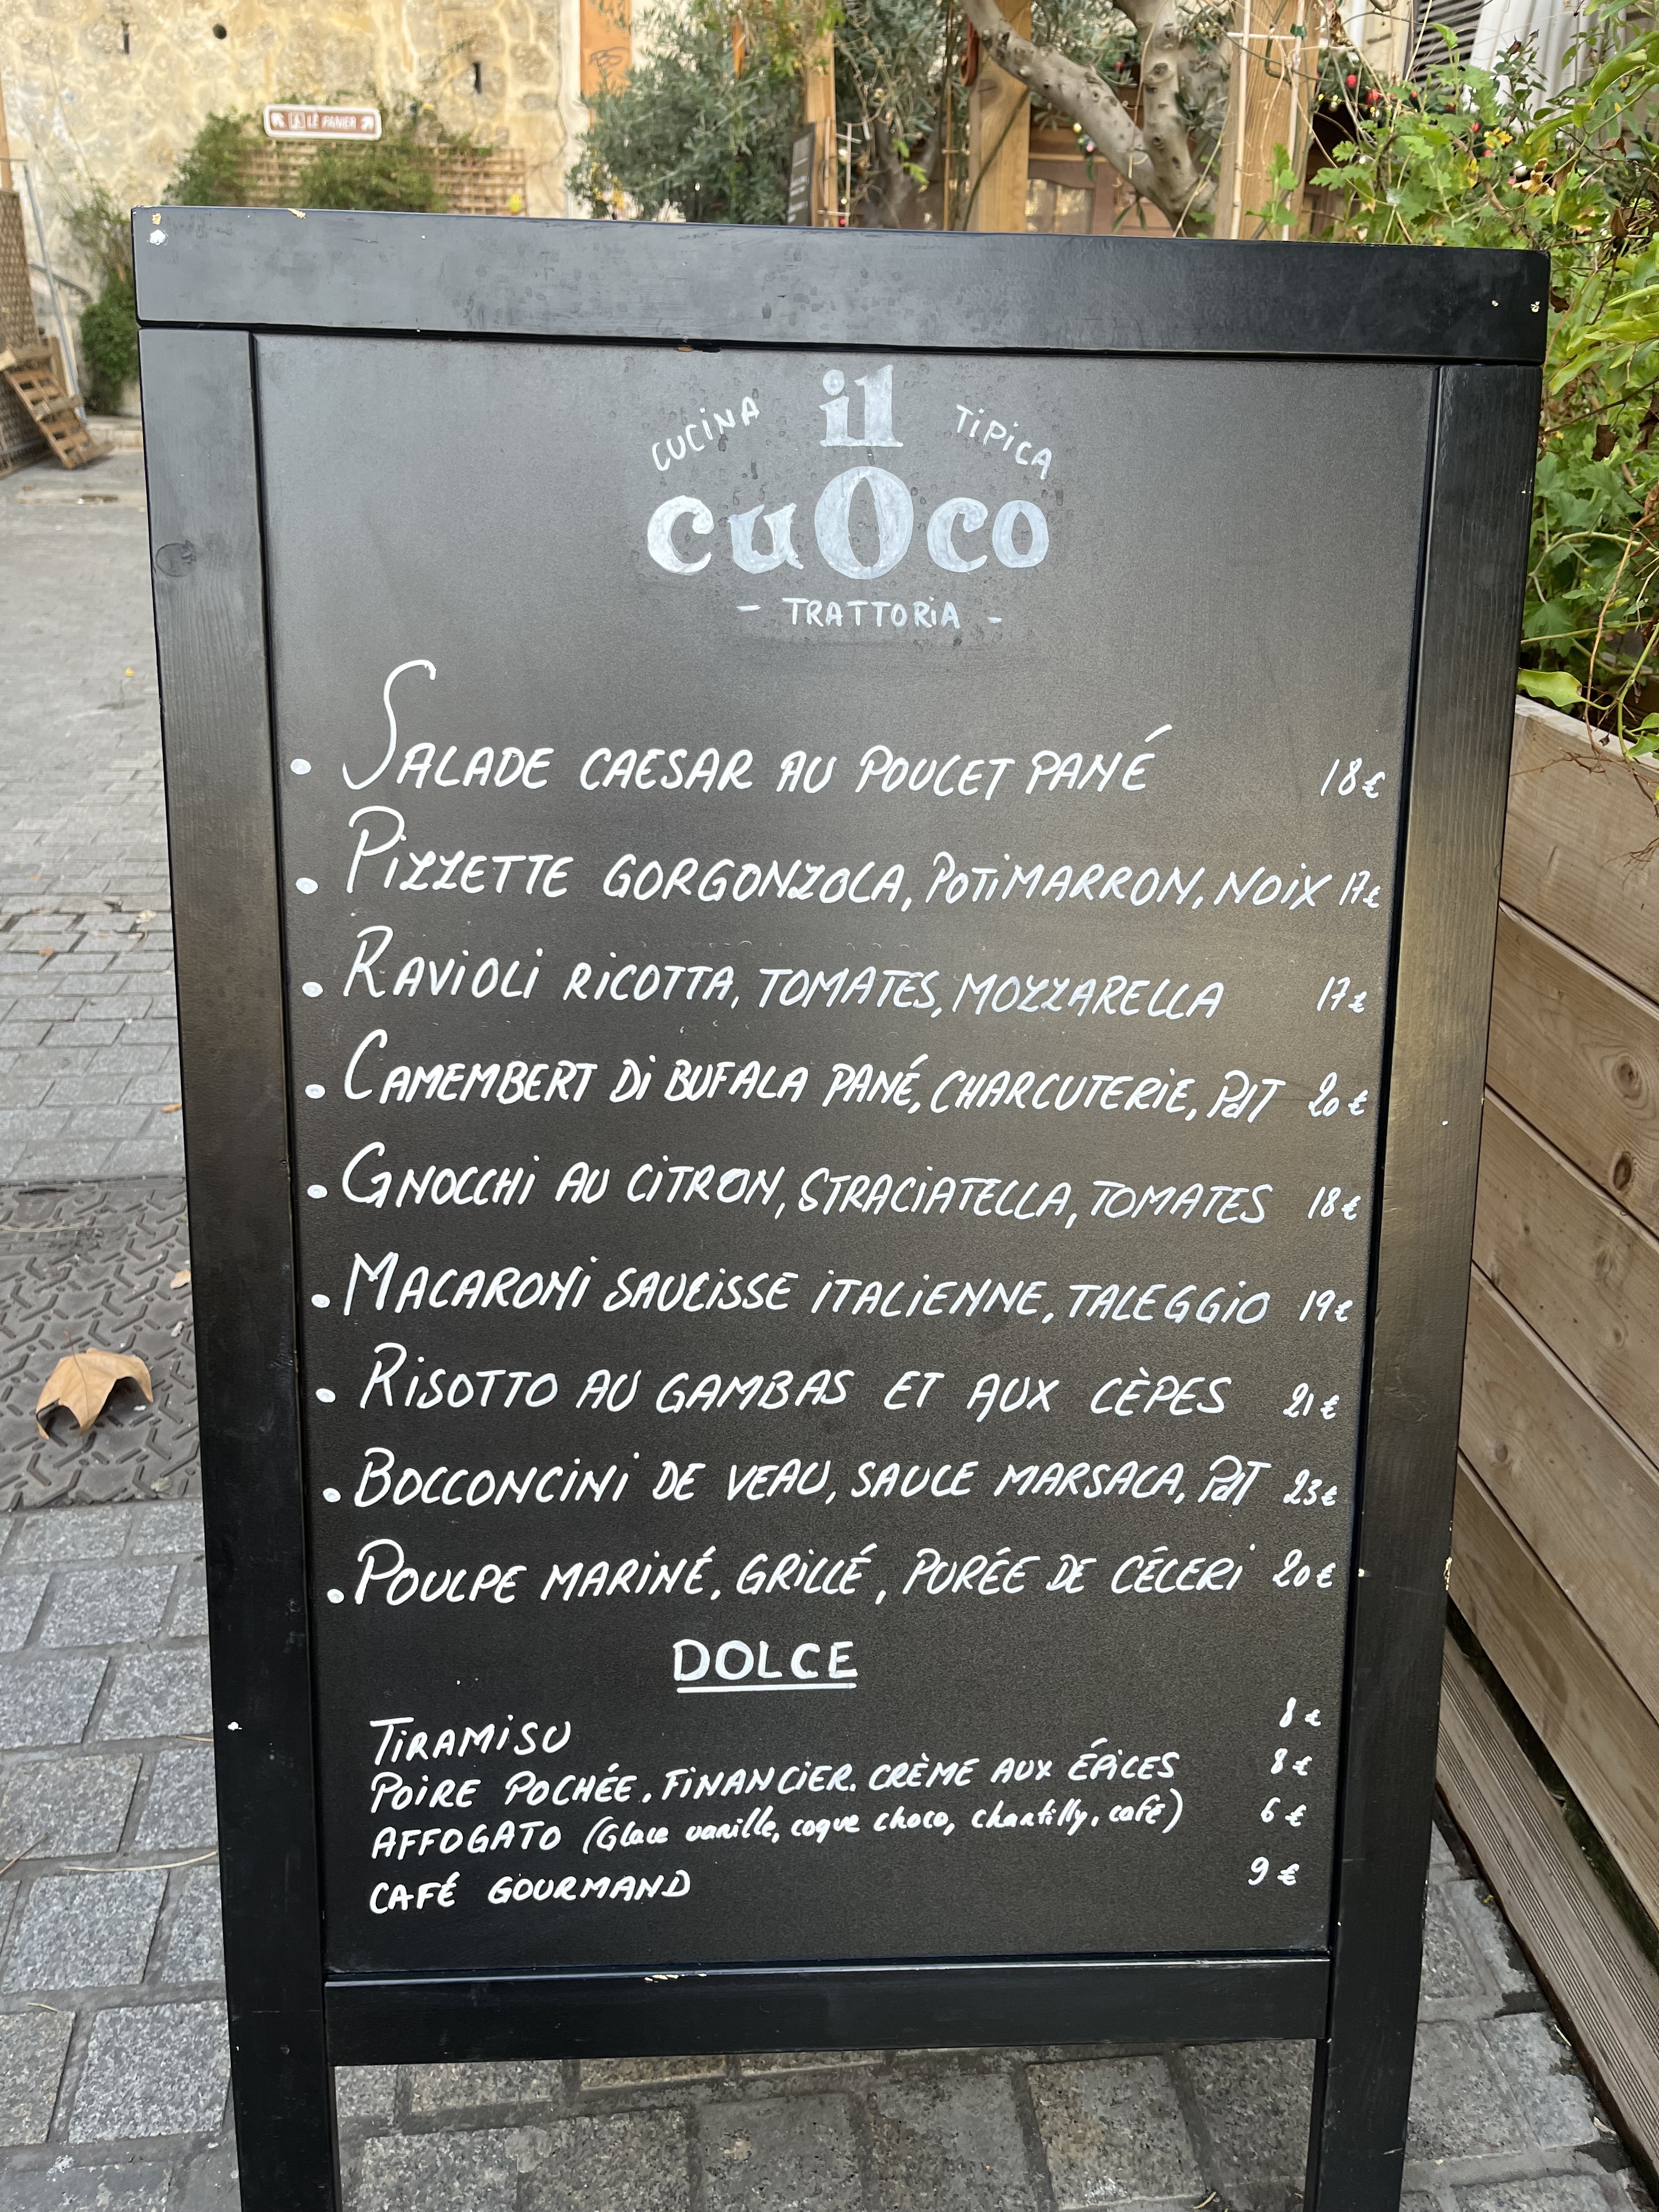 LE PANIER
CUCINA il TIPICA
cuOco
- TRATTORIA -
• SALADE CAESAR AU POULET PANÉ 18€
• PIZZETTE GORGONZOLA, POTIMARRON, NOIX 17€
• RAVIOLI RICOTTA, TOMATES, MOZZARELLA 17€
• CAMEMBERT Di BUFALA PANÉ, CHARCUTERIE, PdT 20€
• GNOCCHI AU CITRON, STRACIATELLA, TOMATES 18€
• MACARONI SAUCISSE ITALIENNE, TALEGGIO 19€
• RISOTTO AU GAMBAS ET AUX CÈPES 21€
• BOCCONCINI DE VEAU, SAUCE MARSALA, PdT 23€
• POULPE MARINÉ, GRILLÉ, PURÉE DE CÉLERI 20€
DOLCE
TIRAMISU 8€
POIRE POCHÉE, FINANCIER. CRÈME AUX ÉPICES 8€
AFFOGATO (Glace vanille, coque choco, chantilly, café) 6€
CAFÉ GOURMAND 9€